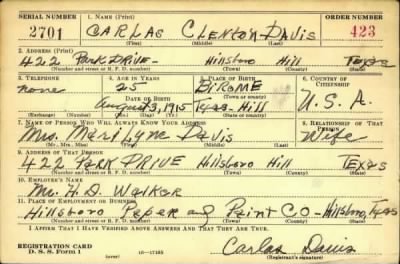 SERIAL NUMBER 1. NAME (Print) ORDER NUMBER
2701 CARLAS CLENTON DAVIS 423
(First) (Middle) (Last)
2. ADDRESS (Print)
422 PARK DRIVE- Hillsboro Hill Texas
(Number and street or R. F. D. number) (Town) (County) (State)
3. TELEPHONE 4. AGE IN YEARS 5. PLACE OF BIRTH 6. COUNTRY OF CITIZENSHIP
none 25 BIROME U.S.A.
DATE OF BIRTH (Town or county)
August 3, 1915 Texas-Hill
(Exchange) (Number) (Mo.) (Day) (Yr.) (State or country)
7. NAME OF PERSON WHO WILL ALWAYS KNOW YOUR ADDRESS 8. RELATIONSHIP OF THAT PERSON
Mrs. Marilyne Davis Wife
(Mr., Mrs., Miss) (First) (Middle) (Last)
9. ADDRESS OF THAT PERSON
422 PARK DRIVE Hillsboro Hill TEXAS
(Number and street or R. F. D. number) (Town) (County) (State)
10. EMPLOYER'S NAME
Mr. H.D. Walker
11. PLACE OF EMPLOYMENT OR BUSINESS
Hillsboro Paper and Paint CO- Hillsboro, Texas
(Number and street or R. F. D. number) (Town) (County) (State)
I AFFIRM THAT I HAVE VERIFIED ABOVE ANSWERS AND THAT THEY ARE TRUE.
REGISTRATION CARD
D. S. S. Form 1 (over) Carlas Davis
(Registrant's signature)